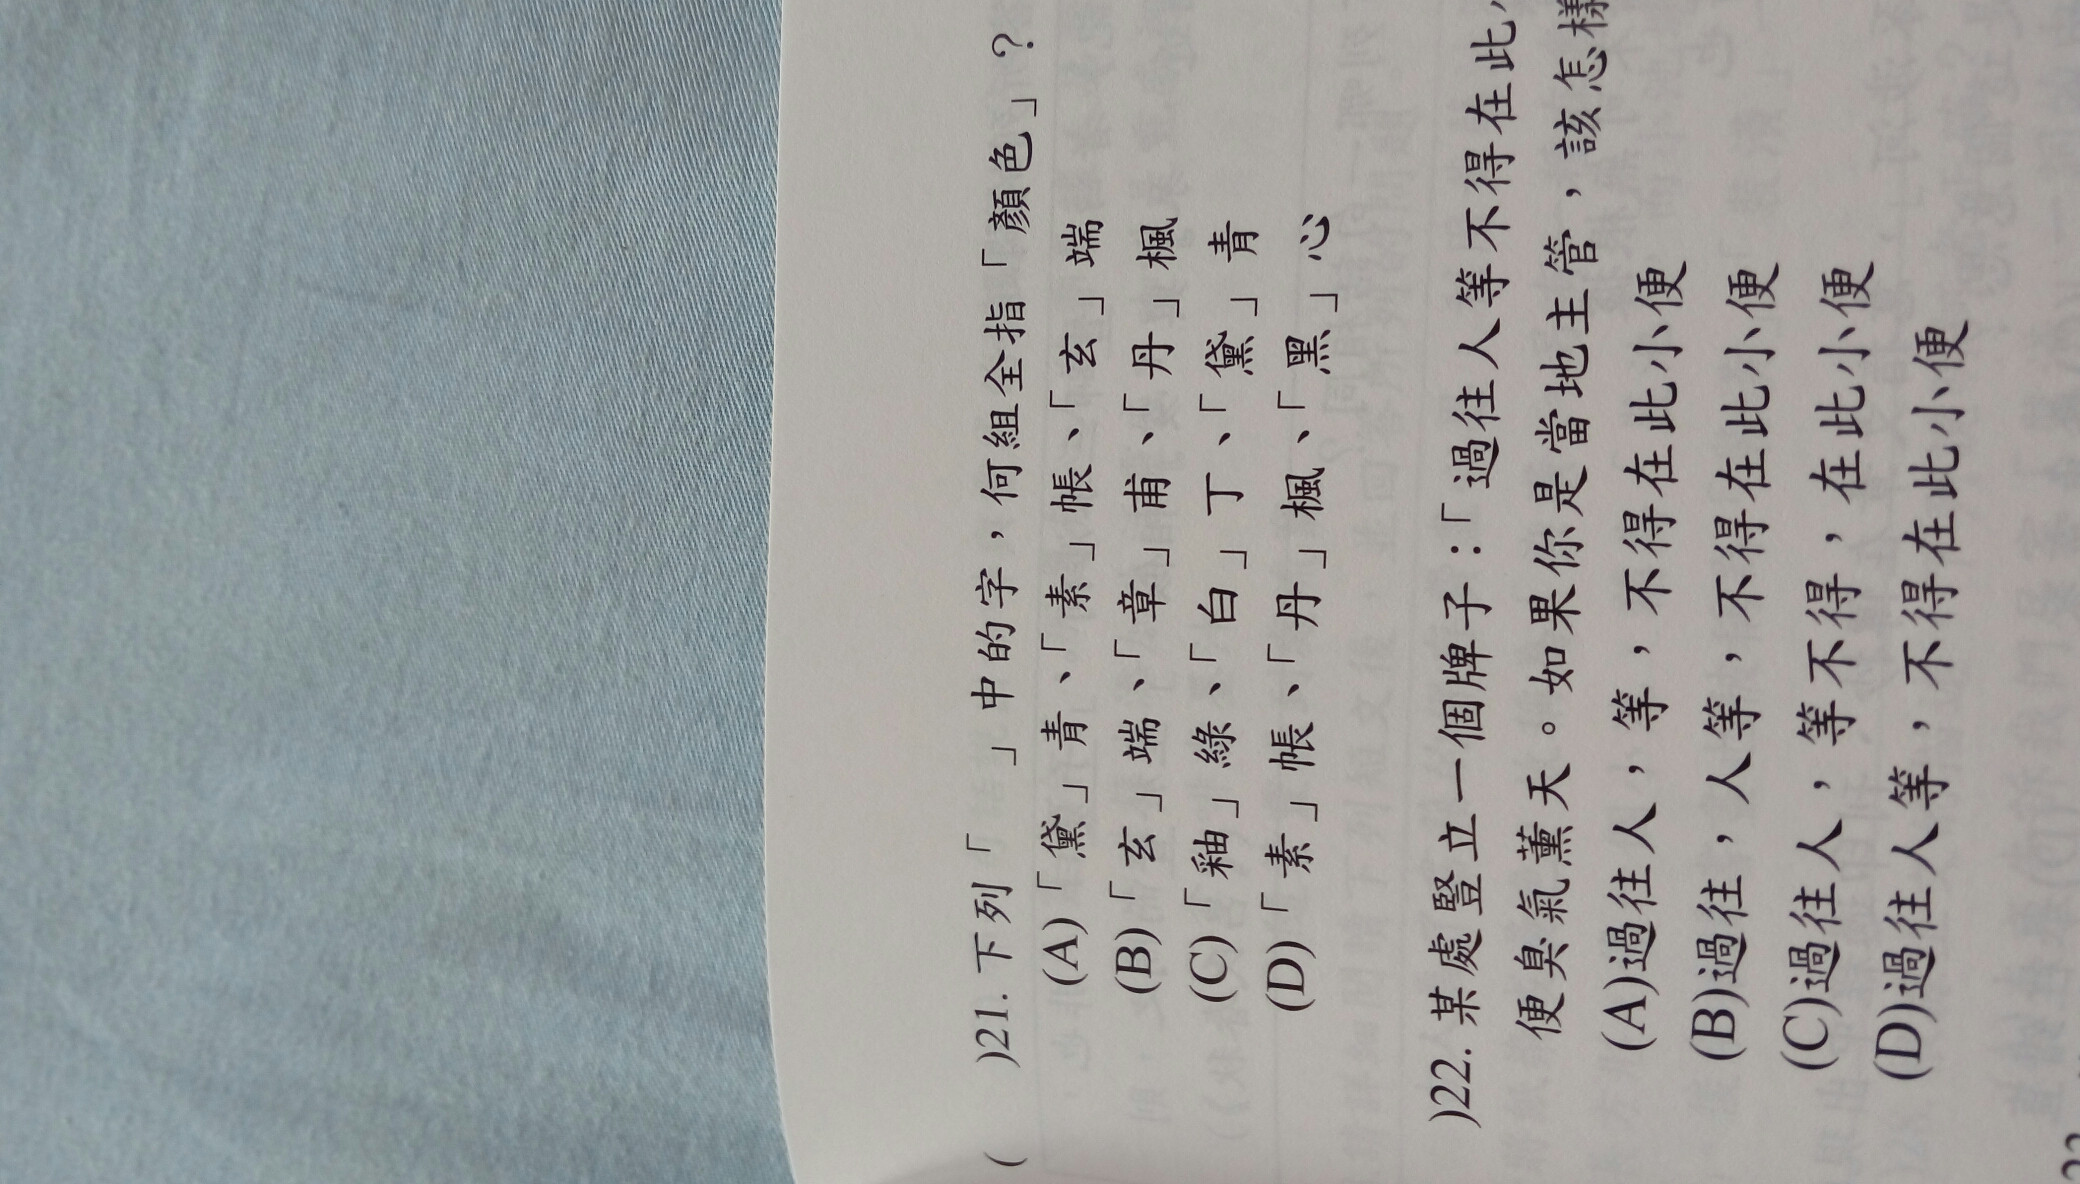 (　)21. 下列「　」中的字，何組全指「顏色」？
(A)「黛」青、「素」帳、「玄」端
(B)「玄」端、「章」甫、「丹」楓
(C)「釉」綠、「白」丁、「黛」青
(D)「素」帳、「丹」楓、「黑」心
)22. 某處豎立一個牌子：「過往人等不得在此
便臭氣薰天。如果你是當地主管，該怎樣
(A)過往人，等，不得在此小便
(B)過往，人等，不得在此小便
(C)過往人，等不得，在此小便
(D)過往人等，不得在此小便